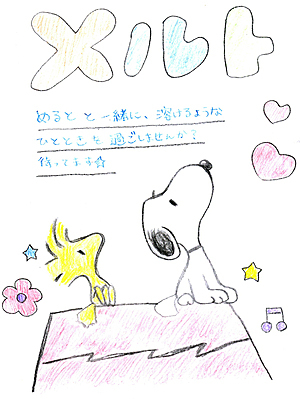 メルト
めるとと一緒に、溶けるような
ひとときを過ごしませんか？
待ってます☆